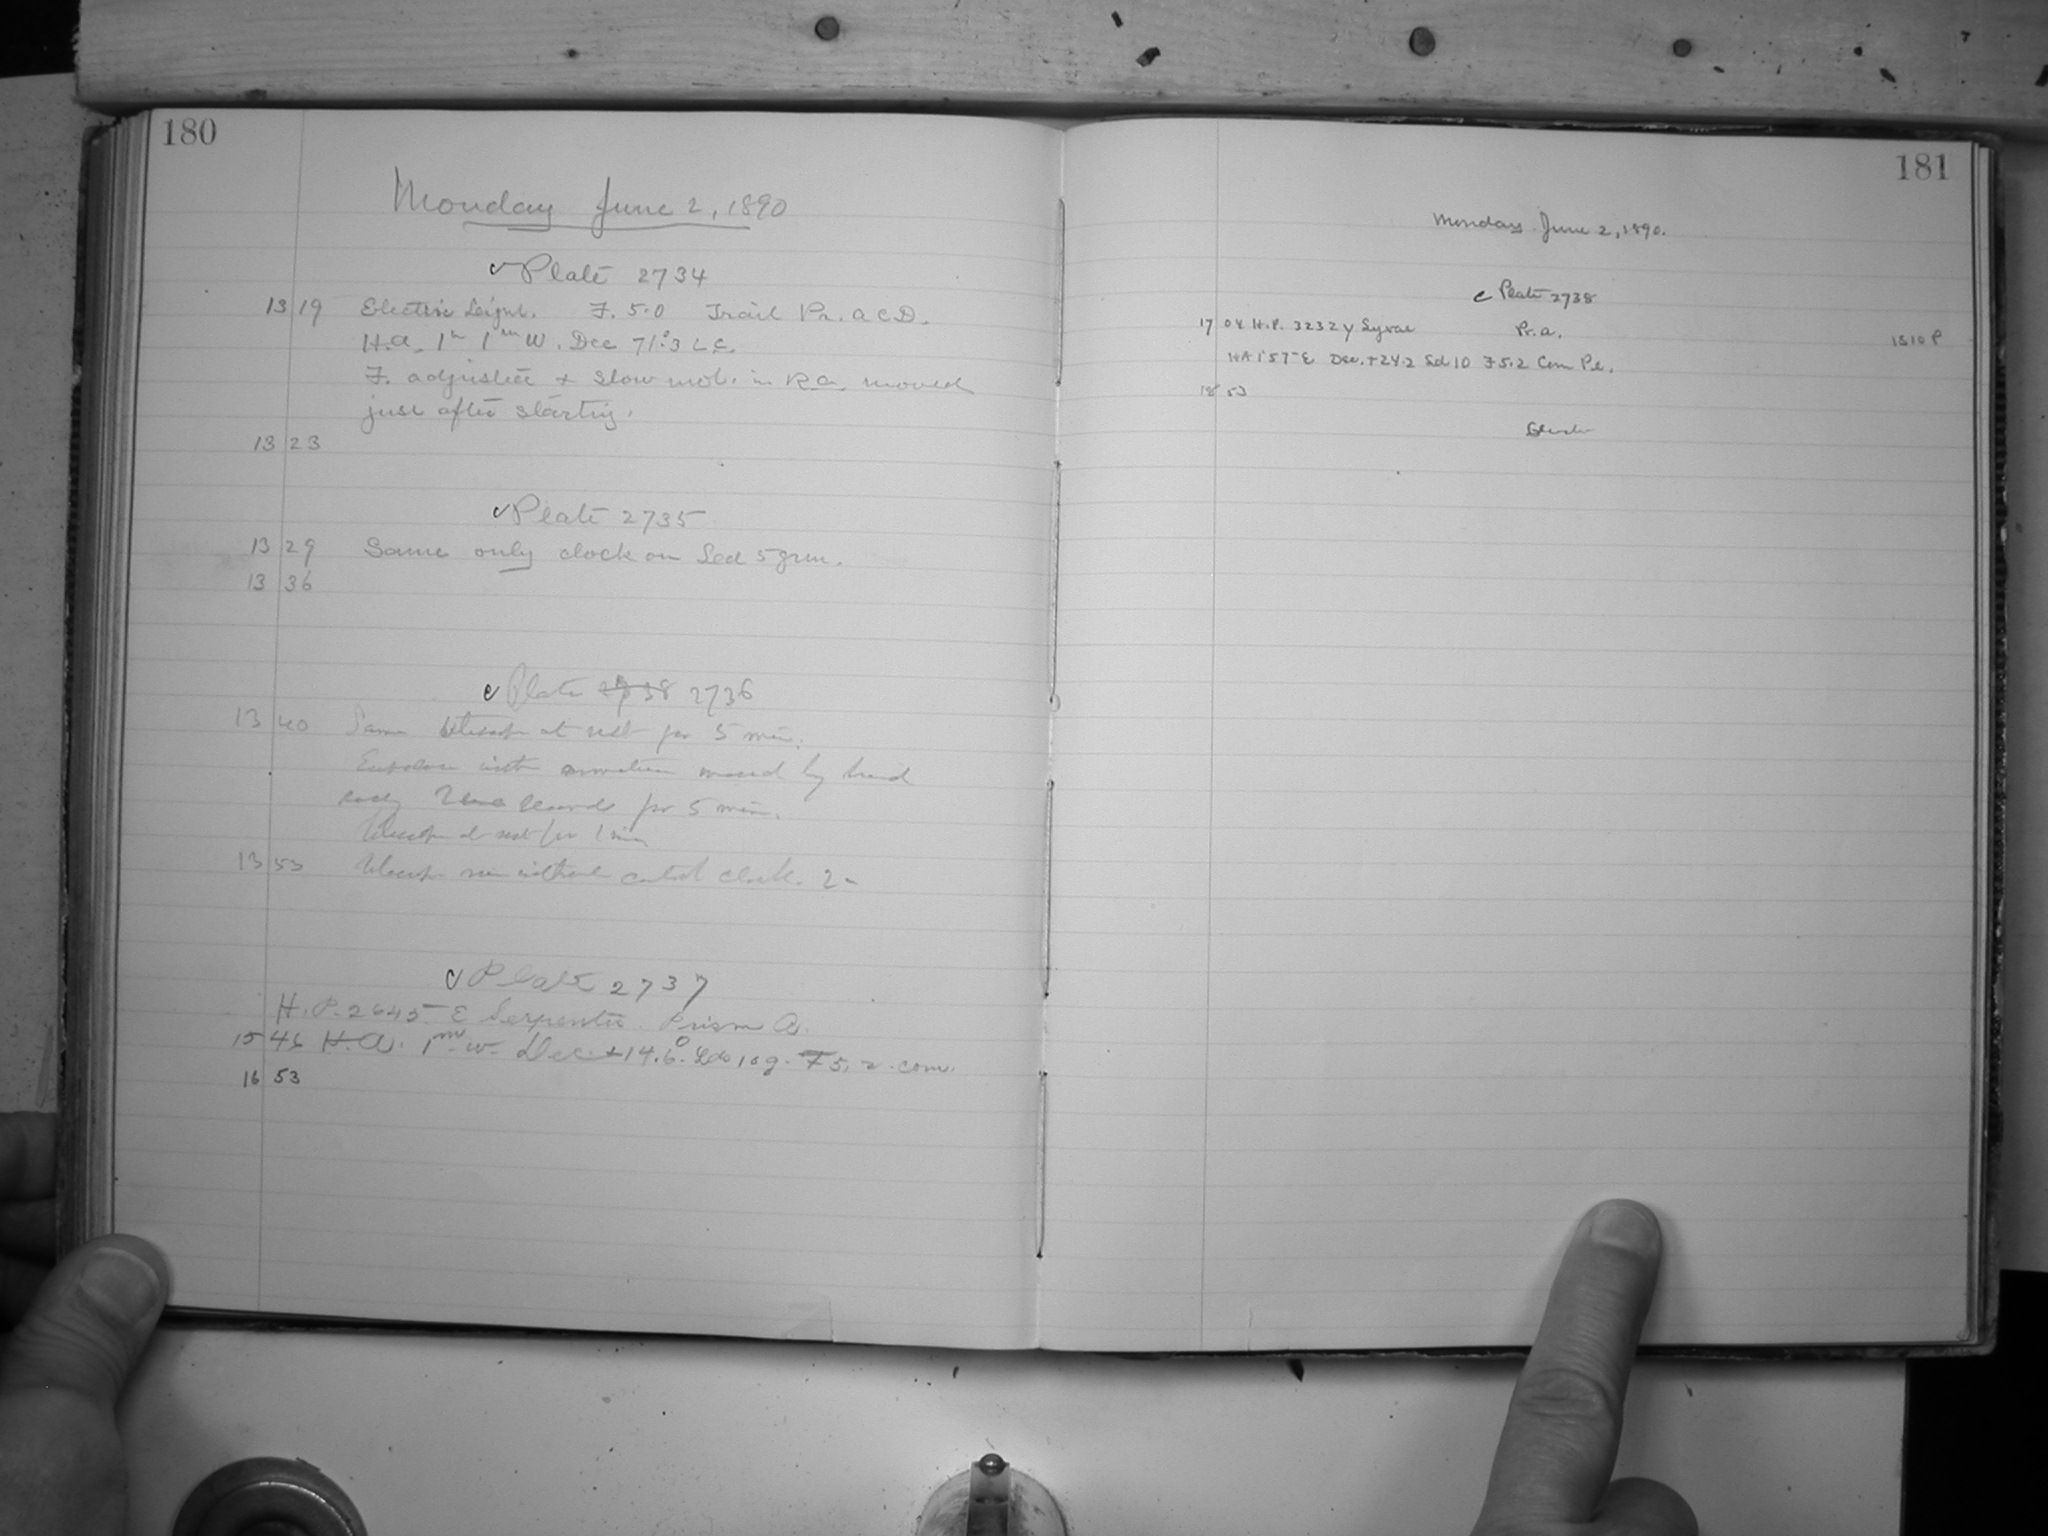 180
Monday June 2, 1890
Plate 2734
13 19 Electric Light. F. 5.0 Trail Pr. A C D.
H.A. 1h 1m W. Dec 71°.3 L.C.
F. adjusted + slow mot. in R.A. moved
just after starting.
13 23
Plate 2735
13 29 Same only clock on Led 5 grm.
13 36
Plate 2738 2736
13 40 Same telescope at rest for 5 min.
Exposure with moved by hand
every seconds for 5 min.
Telescope at rest for 1 min
13 53 Telescope run without control clock. 2
Plate 2737
H.P. 2645 E Serpentis. Prism A.
15 46 H.A. 1m W Dec. +14.6° Led 10 g. F 5.2. com.
16 53
181
Monday June 2, 1890.
Plate 2738
17 04 H.P. 3232 γ Lyrae Pr. A. 1810 P
HA 1 57 E Dec. +24.2 Led 10 F 5.2 Com Pl.
18 53